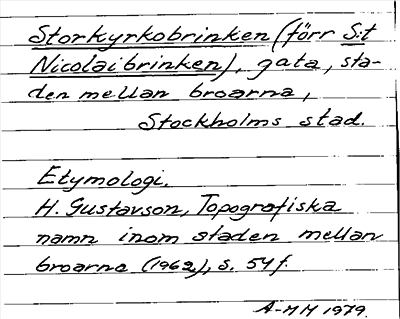 Storkyrkobrinken (förr S:t
Nicolaibrinken), gata, sta-
den mellan broarna,
Stockholms stad.
Etymologi.
H. Gustavson, Topografiska
namn inom staden mellan
broarna (1962), s. 54 f.
A-MM 1979.